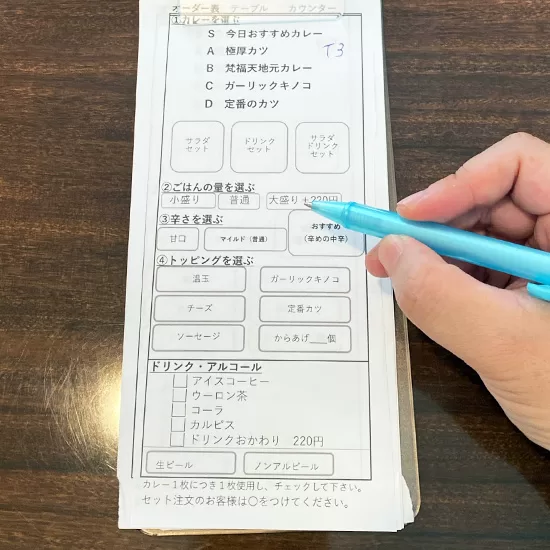 オーダー表 テーブル カウンター
①カレーを選ぶ
S 今日おすすめカレー
T3
A 極厚カツ
B 梵福天地元カレー
C ガーリックキノコ
D 定番のカツ
サラダ
セット
ドリンク
セット
サラダ
ドリンク
セット
②ごはんの量を選ぶ
小盛り 普通 大盛り+220円
③辛さを選ぶ
甘口 マイルド(普通)
おすすめ
(辛めの中辛)
④トッピングを選ぶ
温玉 ガーリックキノコ
チーズ 定番カツ
ソーセージ からあげ___個
ドリンク・アルコール
アイスコーヒー
ウーロン茶
コーラ
カルピス
ドリンクおかわり 220円
生ビール ノンアルビール
カレー1枚につき1枚使用し、チェックして下さい。
セット注文のお客様は〇をつけてください。